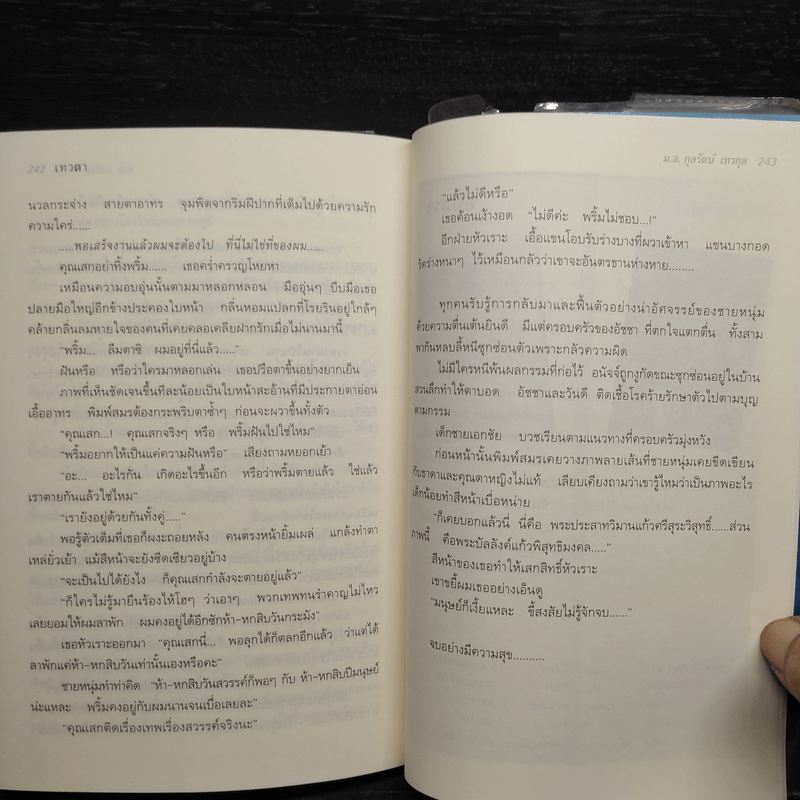 242 เทวตา
นวลกระจ่าง สายตาอาทร จุมพิตจากริมฝีปากที่เต็มไปด้วยความรัก
ความใคร่.....
.....พอเสร็จงานแล้วผมจะต้องไป ที่นี่ไม่ใช่ที่ของผม.....
คุณเสกอย่าทิ้งพริ้ม..... เธอคร่ำครวญโหยหา
เหมือนความอบอุ่นนั้นตามมาหลอกหลอน มืออุ่นๆ บีบมือเธอ
ปลายมือใหญ่อีกข้างประคองใบหน้า กลิ่นหอมแปลกที่โรยรินอยู่ใกล้ๆ
คล้ายกลิ่นลมหายใจของคนที่เคยคลอเคลียฝากรักเมื่อไม่นานมานี้
“พริ้ม... ลืมตาซิ ผมอยู่ที่นี่แล้ว.....”
ฝันหรือ หรือว่าใครมาหลอกเล่น เธอปรือตาขึ้นอย่างยากเย็น
ภาพที่เห็นชัดเจนขึ้นทีละน้อยเป็นใบหน้าสะอ้านที่มีประกายตาอ่อน
เอื้ออาทร พิมพ์สมรต้องกระพริบตาซ้ำๆ ก่อนจะผวาขึ้นทั้งตัว
“คุณเสก...! คุณเสกจริงๆ หรือ พริ้มฝันไปใช่ไหม”
“พริ้มอยากให้เป็นแค่ความฝันหรือ” เสียงถามหยอกเย้า
“อะ... อะไรกัน เกิดอะไรขึ้นอีก หรือว่าพริ้มตายแล้ว ใช่แล้ว
เราตายกันแล้วใช่ไหม”
“เรายังอยู่ด้วยกันทั้งคู่.....”
พอรู้ตัวเต็มที่เธอก็ผงะถอยหลัง คนตรงหน้ายิ้มเผล่ แกล้งทำตา
เหล่ยั่วเย้า แม้สีหน้าจะยังซีดเซียวอยู่บ้าง
“จะเป็นไปได้ยังไง ก็คุณเสกกำลังจะตายอยู่แล้ว”
“ก็ใครไม่รู้มายืนร้องไห้โฮๆ ว่าเอาๆ พวกเทพทนรำคาญไม่ไหว
เลยยอมให้ผมลาพัก ผมคงอยู่ได้อีกซักห้า-หกสิบวันกระมัง”
เธอหัวเราะออกมา “คุณเสกนี่... พอลุกได้ก็ตลกอีกแล้ว ว่าแต่ได้
ลาพักแค่ห้า-หกสิบวันเท่านั้นเองหรือคะ”
ชายหนุ่มทำท่าคิด “ห้า-หกสิบวันสวรรค์ก็พอๆ กับ ห้า-หกสิบปีมนุษย์
น่ะแหละ พริ้มคงอยู่กับผมนานจนเบื่อเลยละ”
“คุณเสกติดเรื่องเทพเรื่องสวรรค์จริงนะ”
ม.ล. กุลรัตน์ เทวกุล 243
“แล้วไม่ดีหรือ”
เธอค้อนเง้างอด “ไม่ดีค่ะ พริ้มไม่ชอบ...!”
อีกฝ่ายหัวเราะ เอื้อแขนโอบรับร่างบางที่ผวาเข้าหา แขนบางกอด
รัดร่างหนาๆ ไว้เหมือนกลัวว่าเขาจะอันตรธานห่างหาย........
ทุกคนรับรู้การกลับมาและฟื้นตัวอย่างน่าอัศจรรย์ของชายหนุ่ม
ด้วยความตื่นเต้นยินดี มีแต่ครอบครัวของอัชชา ที่ตกใจแตกตื่น ทั้งสาม
พากันหลบลี้หนีซุกซ่อนตัวเพราะกลัวความผิด
ไม่มีใครหนีพ้นผลกรรมที่ก่อไว้ อนัจจ์ถูกงูกัดขณะซุกซ่อนอยู่ในบ้าน
สวนลึกทำให้ตาบอด อัชชาและวันดี ติดเชื้อโรคร้ายรักษาตัวไปตามบุญ
ตามกรรม
เด็กชายเอกชัย บวชเรียนตามแนวทางที่ครอบครัวมุ่งหวัง
ก่อนหน้านั้นพิมพ์สมรเคยวางภาพลายเส้นที่ชายหนุ่มเคยขีดเขียน
กับธาดาและคุณตาหญิงไม่แท้ เลียบเคียงถามว่าเขารู้ไหมว่าเป็นภาพอะไร
เด็กน้อยทำสีหน้าเบื่อหน่าย
“ก็เคยบอกแล้วนี่ นี่คือ พระประสาทวิมานแก้วศรีสุระวิสุทธิ์......ส่วน
ภาพนี้ คือพระบัลลังค์แก้วพิสุทธิมงคล.....”
สีหน้าของเธอทำให้เสกสิทธิ์หัวเราะ
เขาขยี้ผมเธออย่างเอ็นดู
“มนุษย์ก็เงี้ยแหละ ขี้สงสัยไม่รู้จักจบ......”
จบอย่างมีความสุข..........